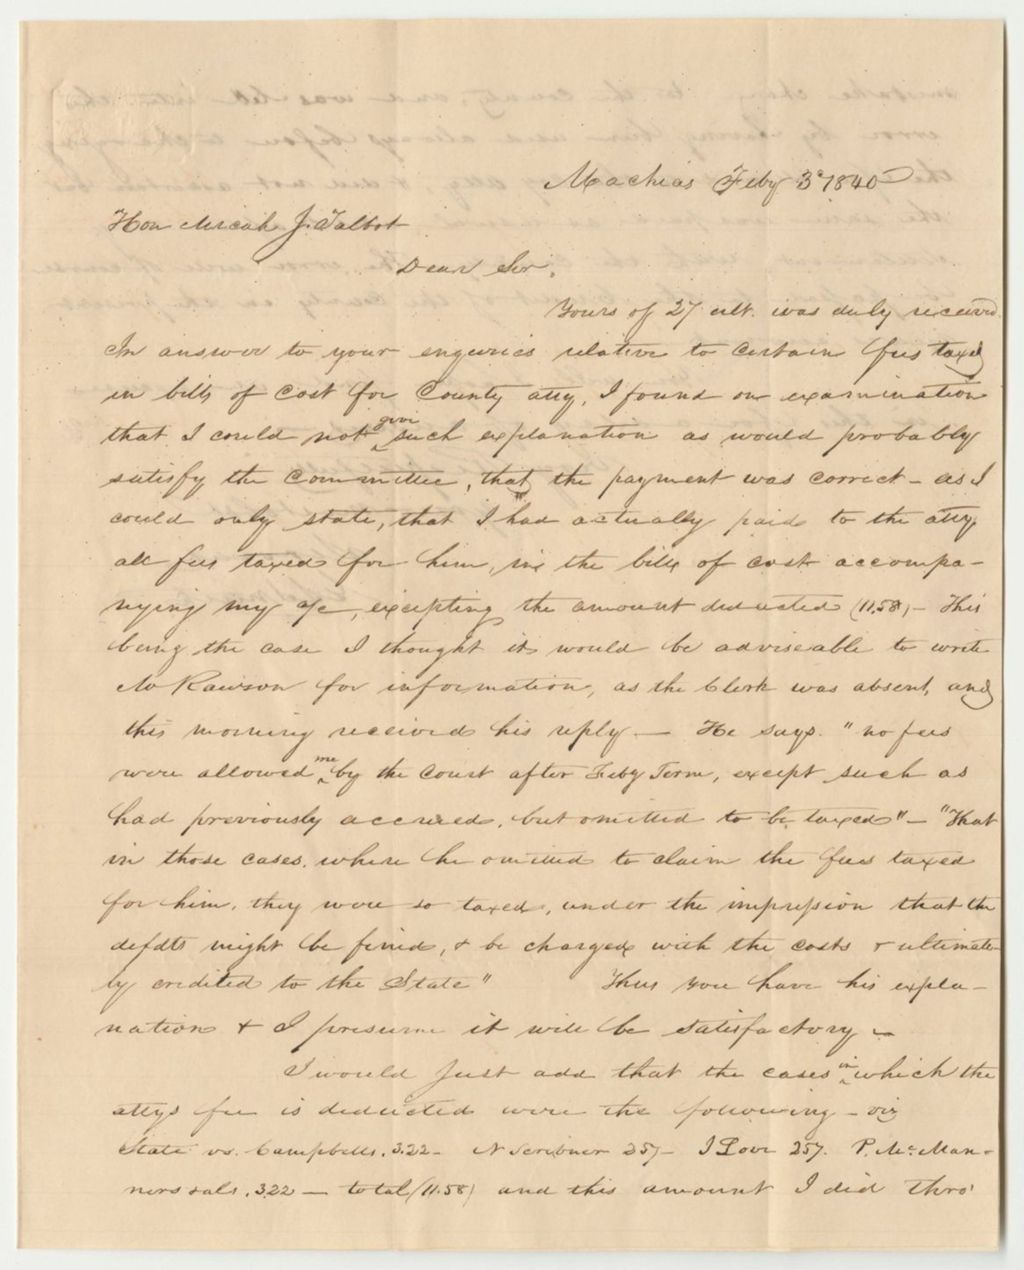 Machias Feby 3d 1840
Hon Micah J. Talbot
Dear Sir,
Yours of 27 ult. was duly received.
In answer to your enquiries relative to certain fees taxed
in bills of cost for County atty, I found on examination
that I could not give such explanation as would probably
satisfy the Committee, that the payment was correct - as I
could only state, that I had actually paid to the atty,
all fees taxed for him, in the bills of cost accompa-
nying my a/c, excepting the amount deducted (11.58) - This
being the case I thought it would be adviseable to write
Mr Rawson for information, as the Clerk was absent, and
this morning received his reply - He says. "no fees
were allowed me by the Court after Feby Term, except such as
had previously accrued, but omitted to be taxed" - "That
in those cases, where he omitted to claim the fees taxed
for him, they were so taxed, under the impression that the
defdts might be fined, & be charged with the costs & ultimate-
ly credited to the State" Thus you have his expla-
nation & I presume it will be satisfactory -
I would Just add that the cases in which the
attys fee is deducted were the following - viz
State vs. Campbells. 3.22 - N Scribner 257 - I Love 257. P. McMan-
ners & als. 3.22 - total (11.58) and this amount I did thro'